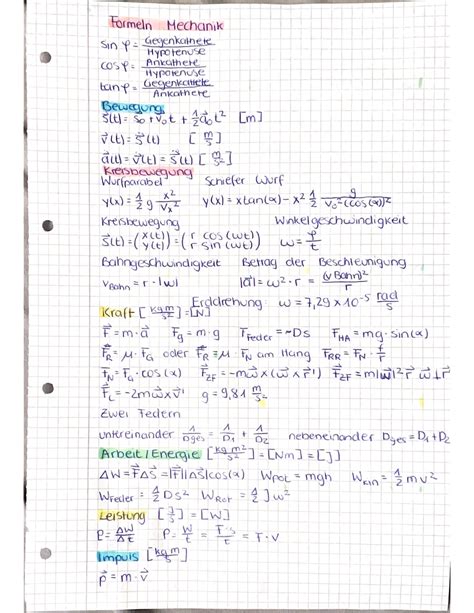 Formeln Mechanik
sin φ = Gegenkathete / Hypotenuse
cos φ = Ankathete / Hypotenuse
tan φ = Gegenkathete / Ankathete
Bewegung
s⃗(t) = s₀ + v⃗₀t + 1/2 a⃗₀t² [m]
v⃗(t) = ṡ⃗(t) [m/s]
a⃗(t) = v̇⃗(t) = s̈⃗(t) [m/s²]
Kreisbewegung
Wurfparabel Schiefer Wurf
y(x) = 1/2 g x²/vₓ² y(x) = x tan(α) - x² 1/2 g/(v₀²(cos(α))²)
Kreisbewegung Winkelgeschwindigkeit
s⃗(t) = (x(t) y(t)) = (r cos(ωt) r sin(ωt)) ω = φ/t
Bahngeschwindigkeit Betrag der Beschleunigung
v_Bahn = r · |ω| |a⃗| = ω² · r = (v Bahn)²/r
Erddrehung ω = 7,29 × 10⁻⁵ rad/s
Kraft [kg m/s²] = [N]
F⃗ = m · a⃗ F_g = m · g F_Feder = -Ds F_HA = mg · sin(α)
F⃗_R = μ · F_G oder F⃗_R = μ · F_N am Hang F_RR = F_N · f/r
F⃗_N = F_G · cos(α) F⃗_ZF = -mω⃗ × (ω⃗ × r⃗') F⃗_ZF = m|ω⃗|² r⃗ ω⃗ ⊥ r⃗
F⃗_C = -2mω⃗ × v⃗' g = 9,81 m/s²
Zwei Federn
untereinander 1/Dges = 1/D₁ + 1/D₂ nebeneinander Dges = D₁ + D₂
Arbeit/Energie [kg m²/s²] = [Nm] = [J]
ΔW = F⃗Δs⃗ = |F⃗||Δs⃗|cos(α) W_pot = mgh W_kin = 1/2 mv²
W_Feder = 1/2 Ds² W_Rot = 1/2 Jω²
Leistung [J/s] = [W]
P = ΔW/Δt P = W/t = F·s/t = F · v
Impuls [kg m/s]
p⃗ = m · v⃗